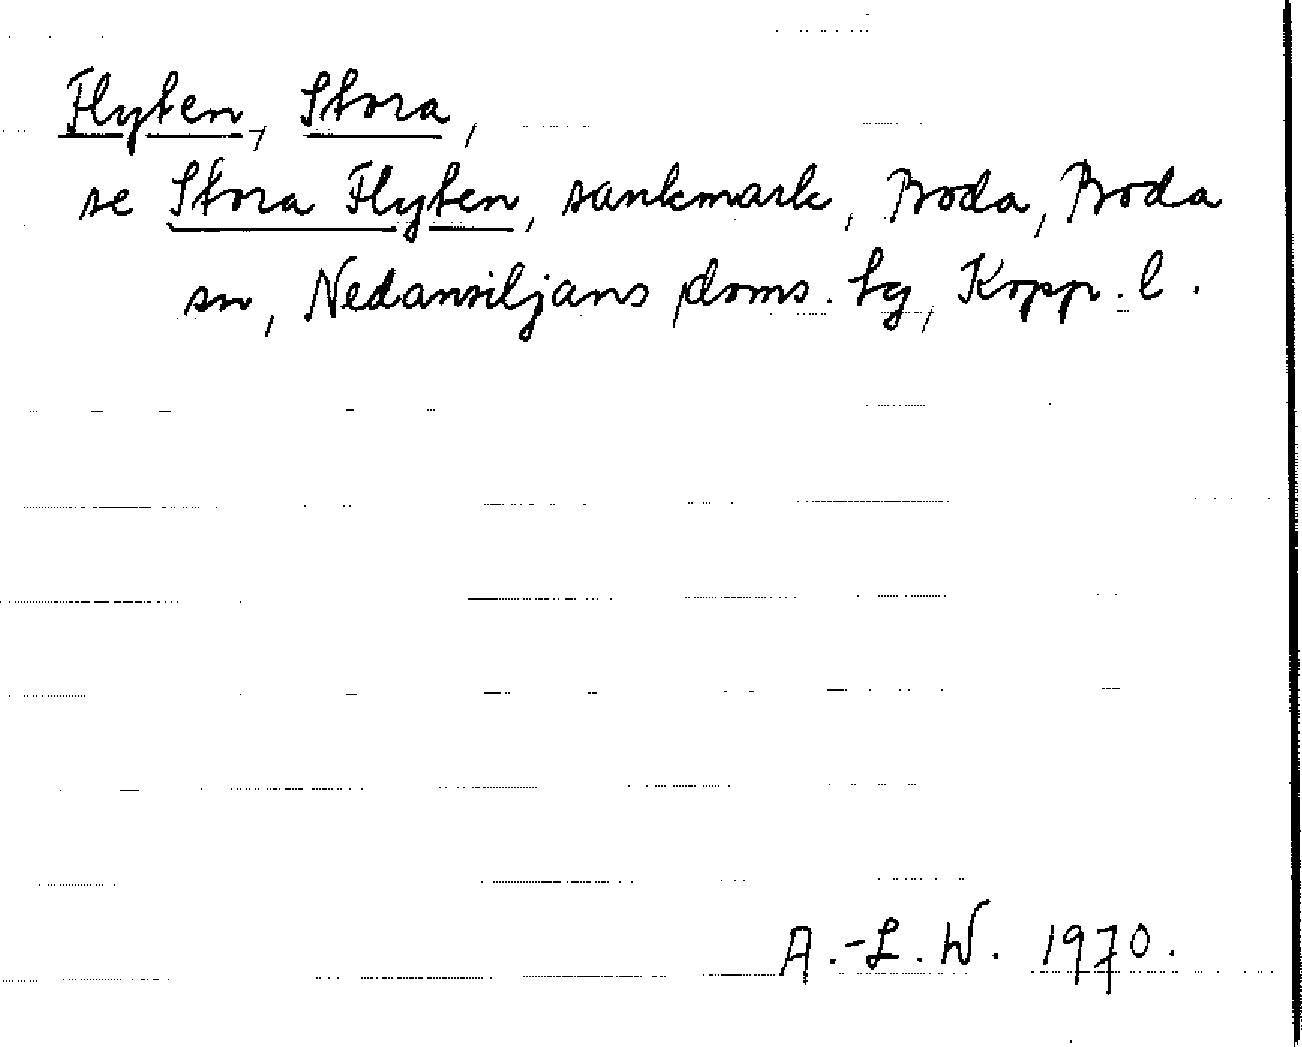 Flyten, Stora,
se Stora Flyten, sankmark, Boda, Boda
sn, Nedansiljans doms. tg, Kopp. l.
A.-L. W. 1970.